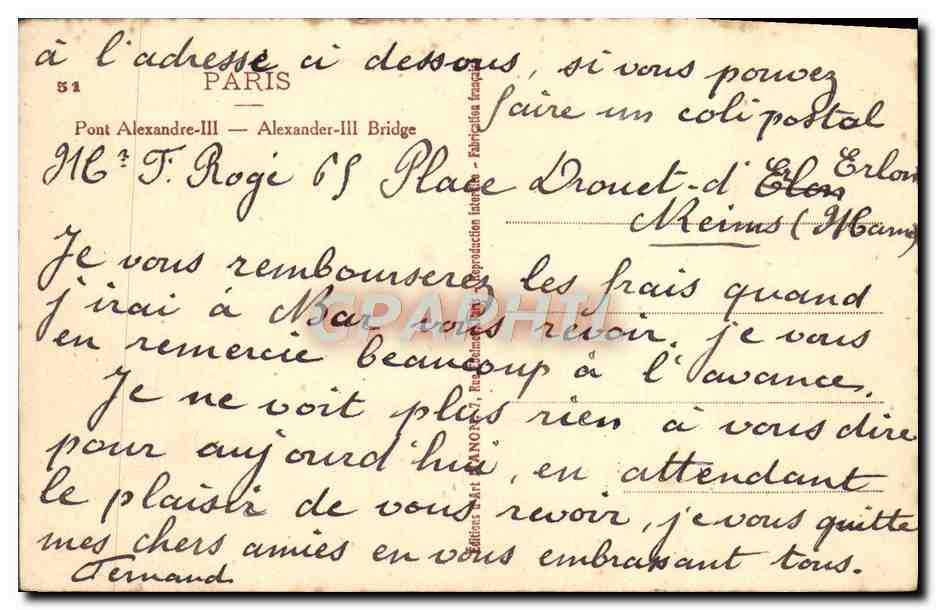 à l'adresse ci dessous, si vous pouvez
51 PARIS
faire un coli postal
Pont Alexandre-III — Alexander-III Bridge
Mr. F. Rogé 65 Place Drouet-d' Erlon Erlon
Reims (Marne)
Je vous rembourserez les frais quand
j'irai à Bar vous revoir, je vous
en remercie beaucoup à l'avance.
Je ne voit plus rien à vous dire
pour aujourd'hui, en attendant
le plaisir de vous revoir, je vous quitte
mes chers amies en vous embrassant tous.
Fernand
Editions d'Art YANON, 7, Rue - Reproduction interdite - Fabrication française
CPARHTI